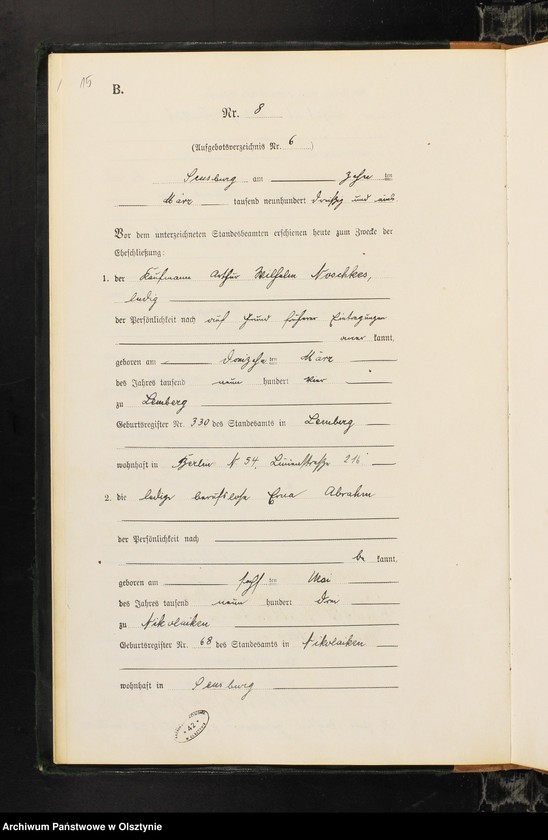 15
B.
Nr. 8
(Aufgebotsverzeichnis Nr. 6)
Sensburg am zehn ten
März tausend neunhundert dreißig und eins
Vor dem unterzeichneten Standesbeamten erschienen heute zum Zwecke der
Eheschließung:
1. der Kaufmann Arthur Wilhelm Noschkes,
ledig
der Persönlichkeit nach auf Grund früherer Eintragungen
aner kannt,
geboren am dreizehn ten März
des Jahres tausend neun hundert vier
zu Lemberg
Geburtsregister Nr. 330 des Standesamts in Lemberg
wohnhaft in Berlin N 54, Linienstraße 216
2. die ledige berufslose Erna Abrahm
der Persönlichkeit nach
be kannt,
geboren am sechs ten Mai
des Jahres tausend neun hundert drei
zu Nikolaiken
Geburtsregister Nr. 68 des Standesamts in Nikolaiken
wohnhaft in Sensburg
42
Archiwum Państwowe w Olsztynie